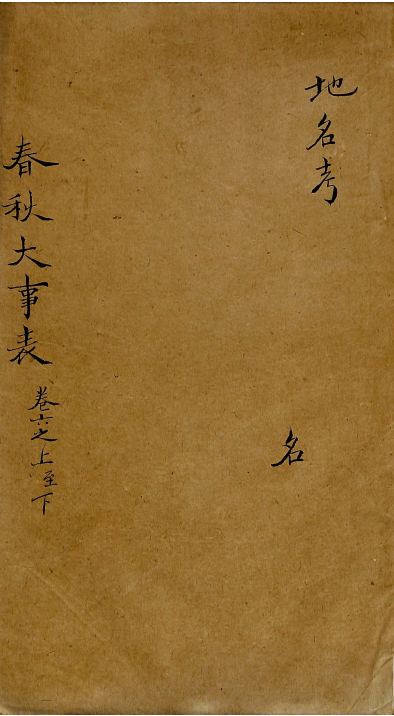 地名考
名
春秋大事表
卷六之上至下